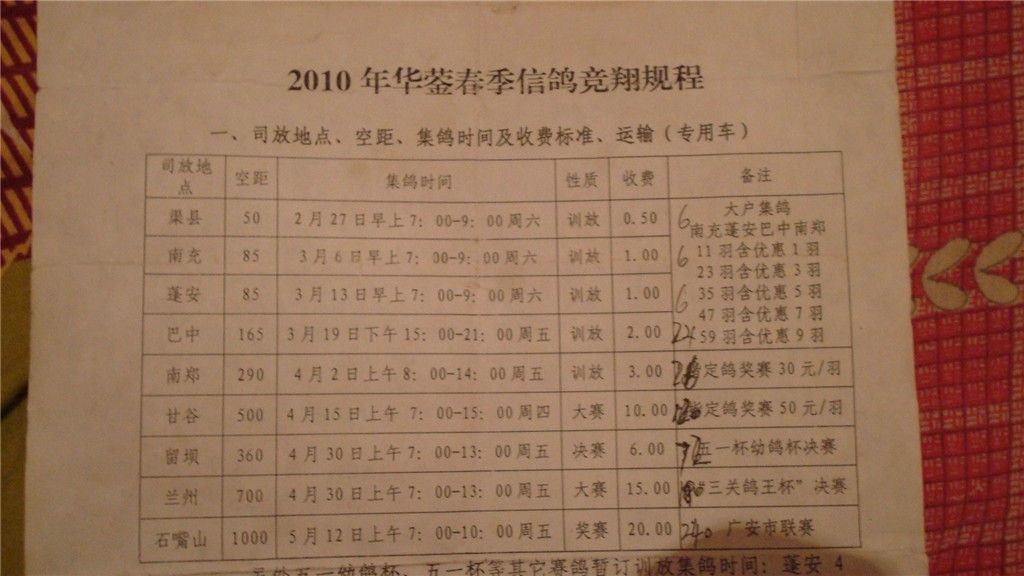 2010 年华蓥春季信鸽竞翔规程
一、司放地点、空距、集鸽时间及收费标准、运输(专用车)
司放地点 空距 集鸽时间 性质 收费 备注
渠县 50 2月27日早上7:00-9:00周六 训放 0.50 6 大户集鸽
南充蓬安巴中南郑
南充 85 3月6日早上7:00-9:00周六 训放 1.00 6 11羽含优惠1羽
23羽含优惠3羽
蓬安 85 3月13日早上7:00-9:00周六 训放 1.00 6 35羽含优惠5羽
47羽含优惠7羽
巴中 165 3月19日下午15:00-21:00周五 训放 2.00 59羽含优惠9羽
南郑 290 4月2日上午8:00-14:00周五 训放 3.00 指定鸽奖赛30元/羽
甘谷 500 4月15日上午7:00-15:00周四 大赛 10.00 指定鸽奖赛50元/羽
留坝 360 4月30日上午7:00-13:00周五 决赛 6.00 五一杯幼鸽杯决赛
兰州 700 4月30日上午7:00-13:00周五 大赛 15.00 “三关鸽王杯”决赛
石嘴山 1000 5月12日上午7:00-10:00周五 奖赛 20.00 240 广安市联赛
另外五一幼鸽杯、五一杯等其它赛鸽暂订训放集鸽时间:蓬安4